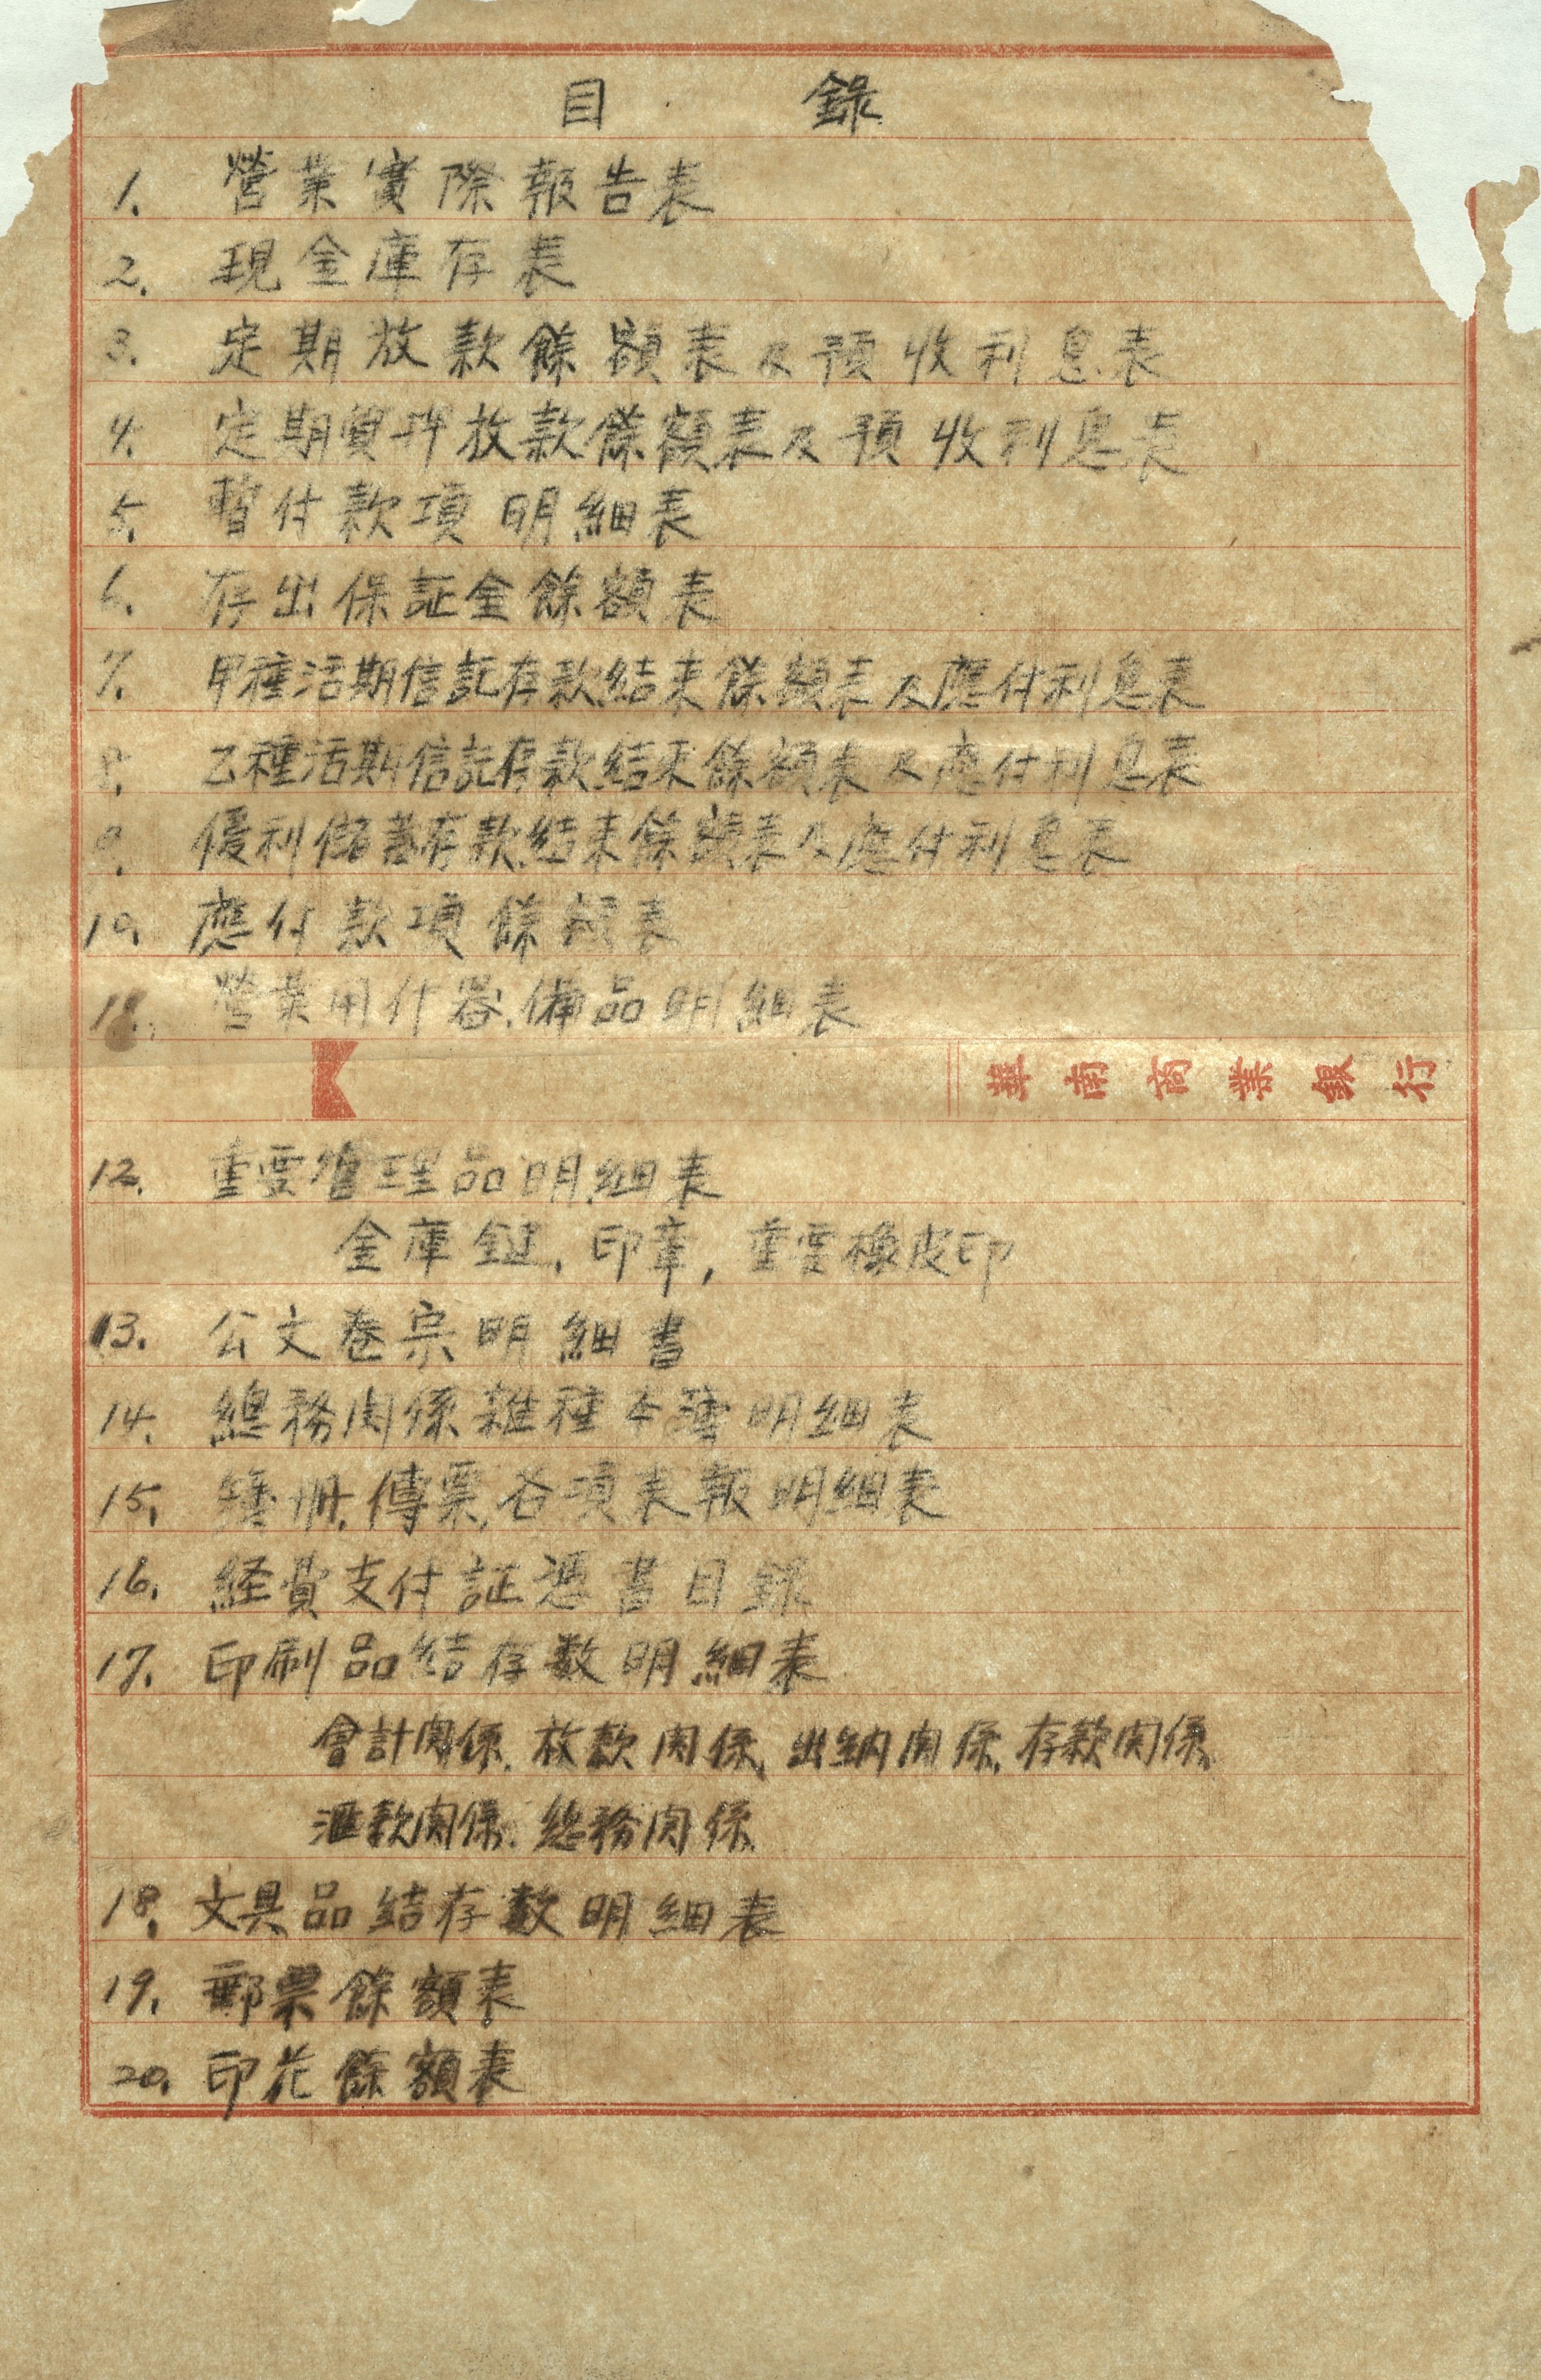 目錄
1. 營業實際報告表
2. 現金庫存表
3. 定期放款餘額表及預收利息表
4. 定期質押放款餘額表及預收利息表
5. 暫付款項明細表
6. 存出保証金餘額表
7. 甲種活期信託存款結末餘額表及應付利息表
8. 乙種活期信託存款結末餘額表及應付利息表
9. 優利儲蓄存款結末餘額表及應付利息表
10. 應付款項餘額表
11. 營業用什器、備品明細表
華南商業銀行
12. 重要管理品明細表
金庫鍵, 印章, 重要橡皮印
13. 公文卷宗明細書
14. 總務関係雜種本簿明細表
15. 簿冊、傳票、各項表報明細表
16. 経費支付証憑書目錄
17. 印刷品結存数明細表
會計関係、放款関係、出納関係、存款関係、
滙款関係、總務関係、
18. 文具品結存數明細表
19. 郵票餘額表
20. 印花餘額表